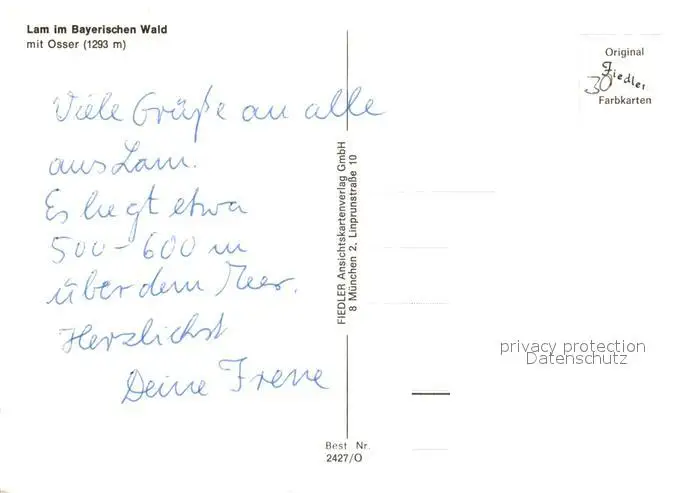 Lam im Bayerischen Wald
mit Osser (1293 m)
Original
Fiedler
30
Farbkarten
Viele Grüße an alle
aus Lam.
Es liegt etwa
500-600 m
über dem Meer.
Herzlichst
Deine Irene
FIEDLER Ansichtskartenverlag GmbH
8 München 2, Linprunstraße 10
privacy protection
Datenschutz
Best Nr.
2427/O